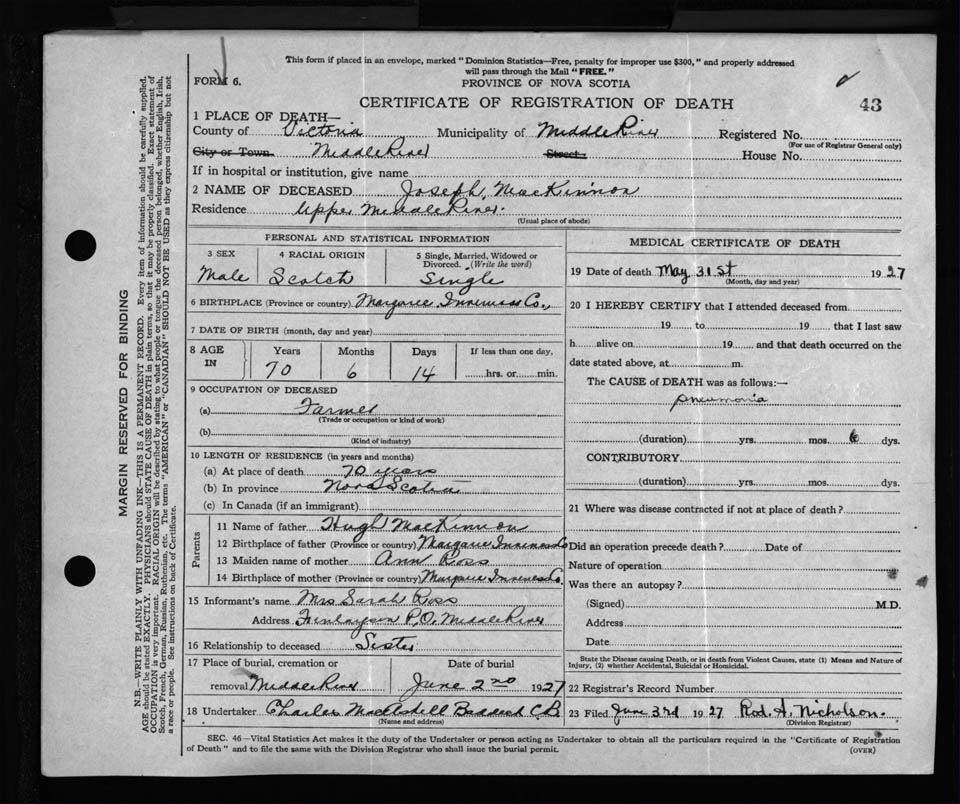 This form if placed in an envelope, marked "Dominion Statistics—Free, penalty for improper use $300," and properly addressed
will pass through the Mail "FREE."
FORM 6.
PROVINCE OF NOVA SCOTIA
CERTIFICATE OF REGISTRATION OF DEATH
43
1 PLACE OF DEATH—
County of Victoria Municipality of Middle River Registered No.
(For use of Registrar General only)
City or Town Middle River Street: House No.
If in hospital or institution, give name
2 NAME OF DECEASED Joseph MacKinnon
Residence Upper Middle River.
(Usual place of abode)
PERSONAL AND STATISTICAL INFORMATION
3 SEX 4 RACIAL ORIGIN 5 Single, Married, Widowed or
Divorced. (Write the word)
Male Scotch Single
6 BIRTHPLACE (Province or country) Margaree Inverness Co.,
7 DATE OF BIRTH (month, day and year)
8 AGE IN Years Months Days If less than one day,
70 6 14 hrs. or min.
9 OCCUPATION OF DECEASED
(a) Farmer
(Trade or occupation or kind of work)
(b)
(Kind of industry)
10 LENGTH OF RESIDENCE (in years and months)
(a) At place of death 70 years
(b) In province Nova Scotia
(c) In Canada (if an immigrant)
Parents
11 Name of father Hugh MacKinnon
12 Birthplace of father (Province or country) Margaree Inverness Co
13 Maiden name of mother Ann Ross
14 Birthplace of mother (Province or country) Margaree Inverness Co.
15 Informant's name Mrs Sarah Ross
Address Finlayson P.O. Middle River
16 Relationship to deceased Sister
17 Place of burial, cremation or Date of burial
removal Middle River June 2nd 1927
18 Undertaker Charles Baddeck C.B.
(Name and address)
MEDICAL CERTIFICATE OF DEATH
19 Date of death May 31st 1927
(Month, day and year)
20 I HEREBY CERTIFY that I attended deceased from
19 to 19 , that I last saw
h alive on 19 and that death occurred on the
date stated above, at m.
The CAUSE of DEATH was as follows:—
pneumonia
(duration) yrs. mos. 6 dys.
CONTRIBUTORY
(duration) yrs. mos. dys.
21 Where was disease contracted if not at place of death?
Did an operation precede death? Date of
Nature of operation
Was there an autopsy?
(Signed) M.D.
Address
Date
State the Disease causing Death, or in death from Violent Causes, state (1) Means and Nature of
Injury, (2) whether Accidental, Suicidal or Homicidal.
22 Registrar's Record Number
23 Filed June 3rd 1927 Rod. A. Nicholson.
(Division Registrar)
SEC. 46—Vital Statistics Act makes it the duty of the Undertaker or person acting as Undertaker to obtain all the particulars required in the "Certificate of Registration
of Death" and to file the same with the Division Registrar who shall issue the burial permit.
(OVER)
MARGIN RESERVED FOR BINDING
N.B.—WRITE PLAINLY WITH UNFADING INK—THIS IS A PERMANENT RECORD. Every item of information should be carefully supplied.
AGE should be stated EXACTLY. PHYSICIANS should STATE CAUSE OF DEATH in plain terms, so that it may be properly classified. Exact statement of
OCCUPATION is very important. RACIAL ORIGIN will be described by stating to what people or tongue the deceased person belonged, whether English, Irish,
Scotch, French, German, Russian, Ruthenian, etc. The terms "AMERICAN" or "CANADIAN" SHOULD NOT BE USED as they express citizenship but not
a race or people. See instructions on back of Certificate.